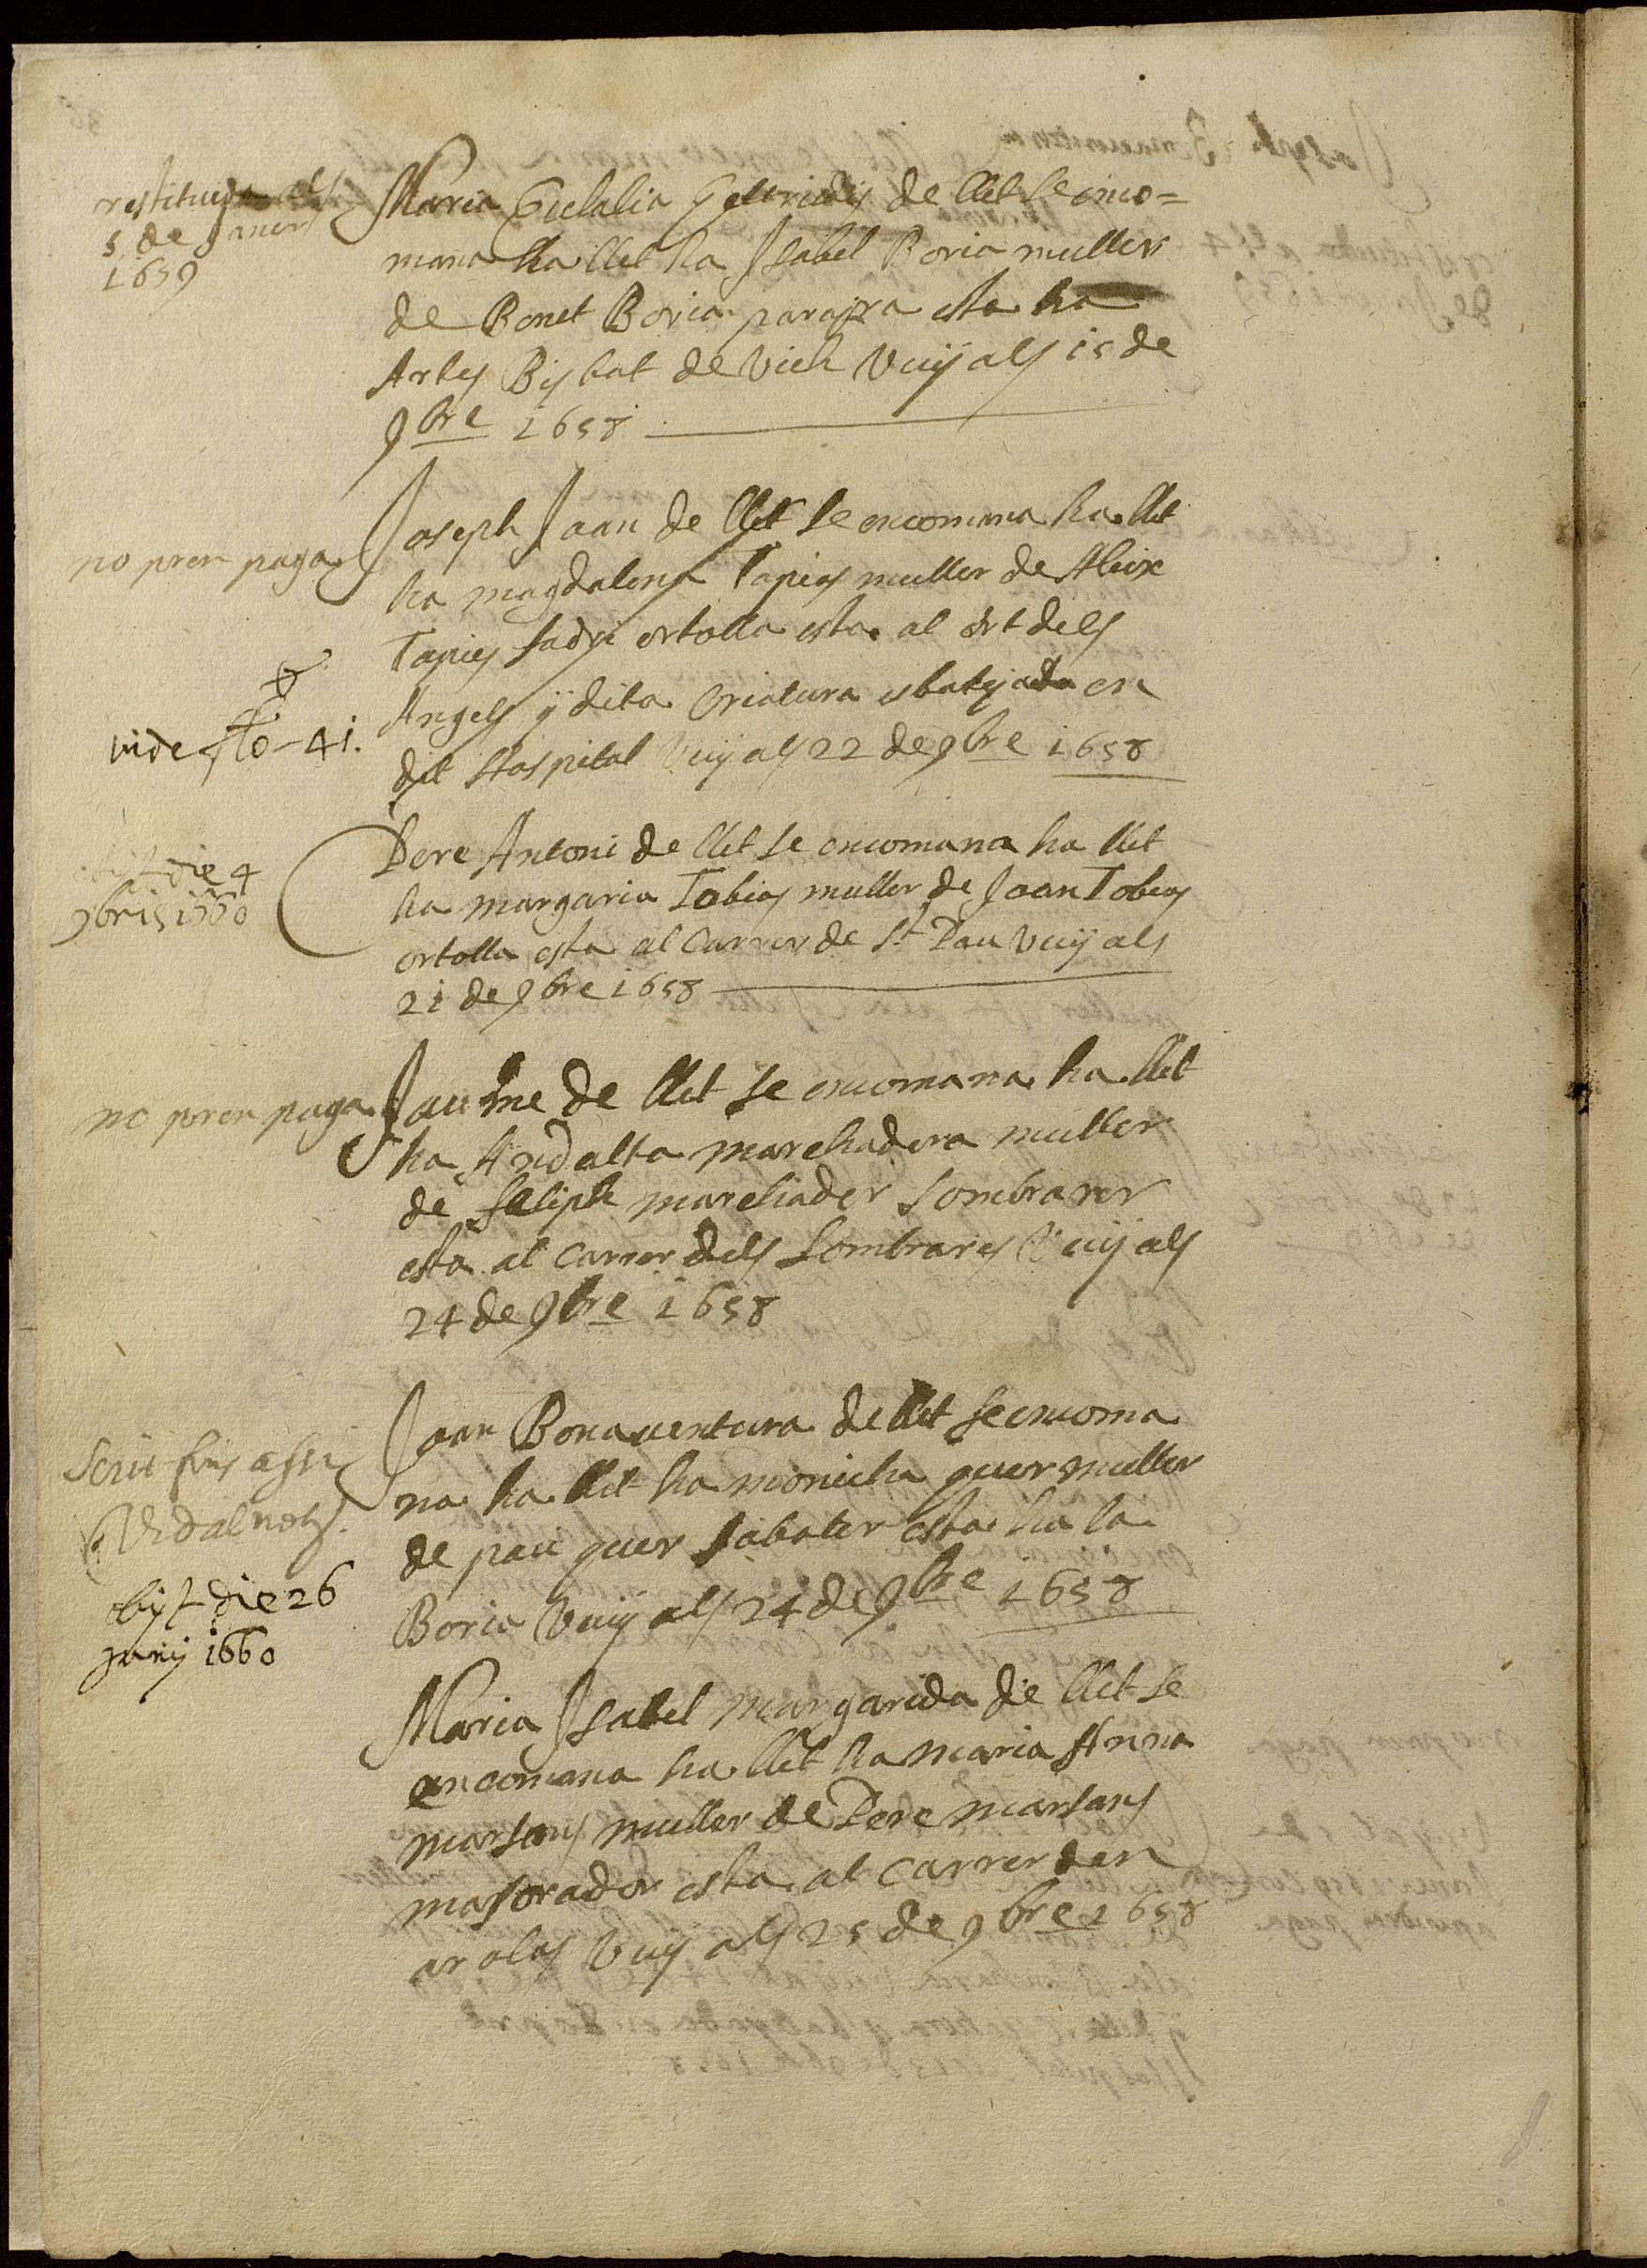 restituida als
5 de Janer
1659
Maria Eulalia Geltrudis de llet se enco=
mana ha llet ha Isabel Boria muller
de Bonet Boria parayra esta ha
Artes Bisbat de Vich Vuÿ als 15 de
9bre 1658
no pren paga
Joseph Joan de llet se encomana ha llet
ha magdalena Tapies muller de Aleix
Tapies fadri ortolla esta al ort dels
Angels ÿ dita Criatura es batejada en
dit Hospital Vuÿ als 22 de 9bre 1658
vide fo- 41.
die 4
9bris 1660
Pere Antoni de llet se encomana ha llet
ha margaria Tobias muller de Joan Tobias
ortolla esta al Carrer de St Pau Vuÿ als
21 de 9bre 1658
no pren paga
Jaume de llet se encomana ha llet
ha Andalta marchadera muller
de feliph marchader sombrarer
esta al carrer dels Sombrares Vuÿ als
24 de 9bre 1658
Joan Bonaventura de llet se encoma
na ha llet ha monicha quer muller
de pau quer sabater esta ha la
Boria Vuÿ als 24 de 9bre 1658
Scrit fins assi
Vidal not.
obijt die 26
Junij 1660
Maria Isabel margarida de llet se
encomana ha llet ha maria Anna
marsans muller de Pere marsans
masorador esta al carrer den
arolas Vuÿ als 25 de 9bre 1658